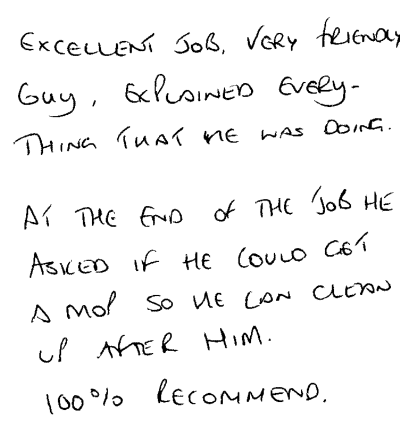 EXCELLENT JOB, VERY FRIENDLY
GUY, EXPLAINED EVERY-
THING THAT HE WAS DOING.
AT THE END OF THE JOB HE
ASKED IF HE COULD GET
A MOP SO HE CAN CLEAN
UP AFTER HIM.
100% RECOMMEND.